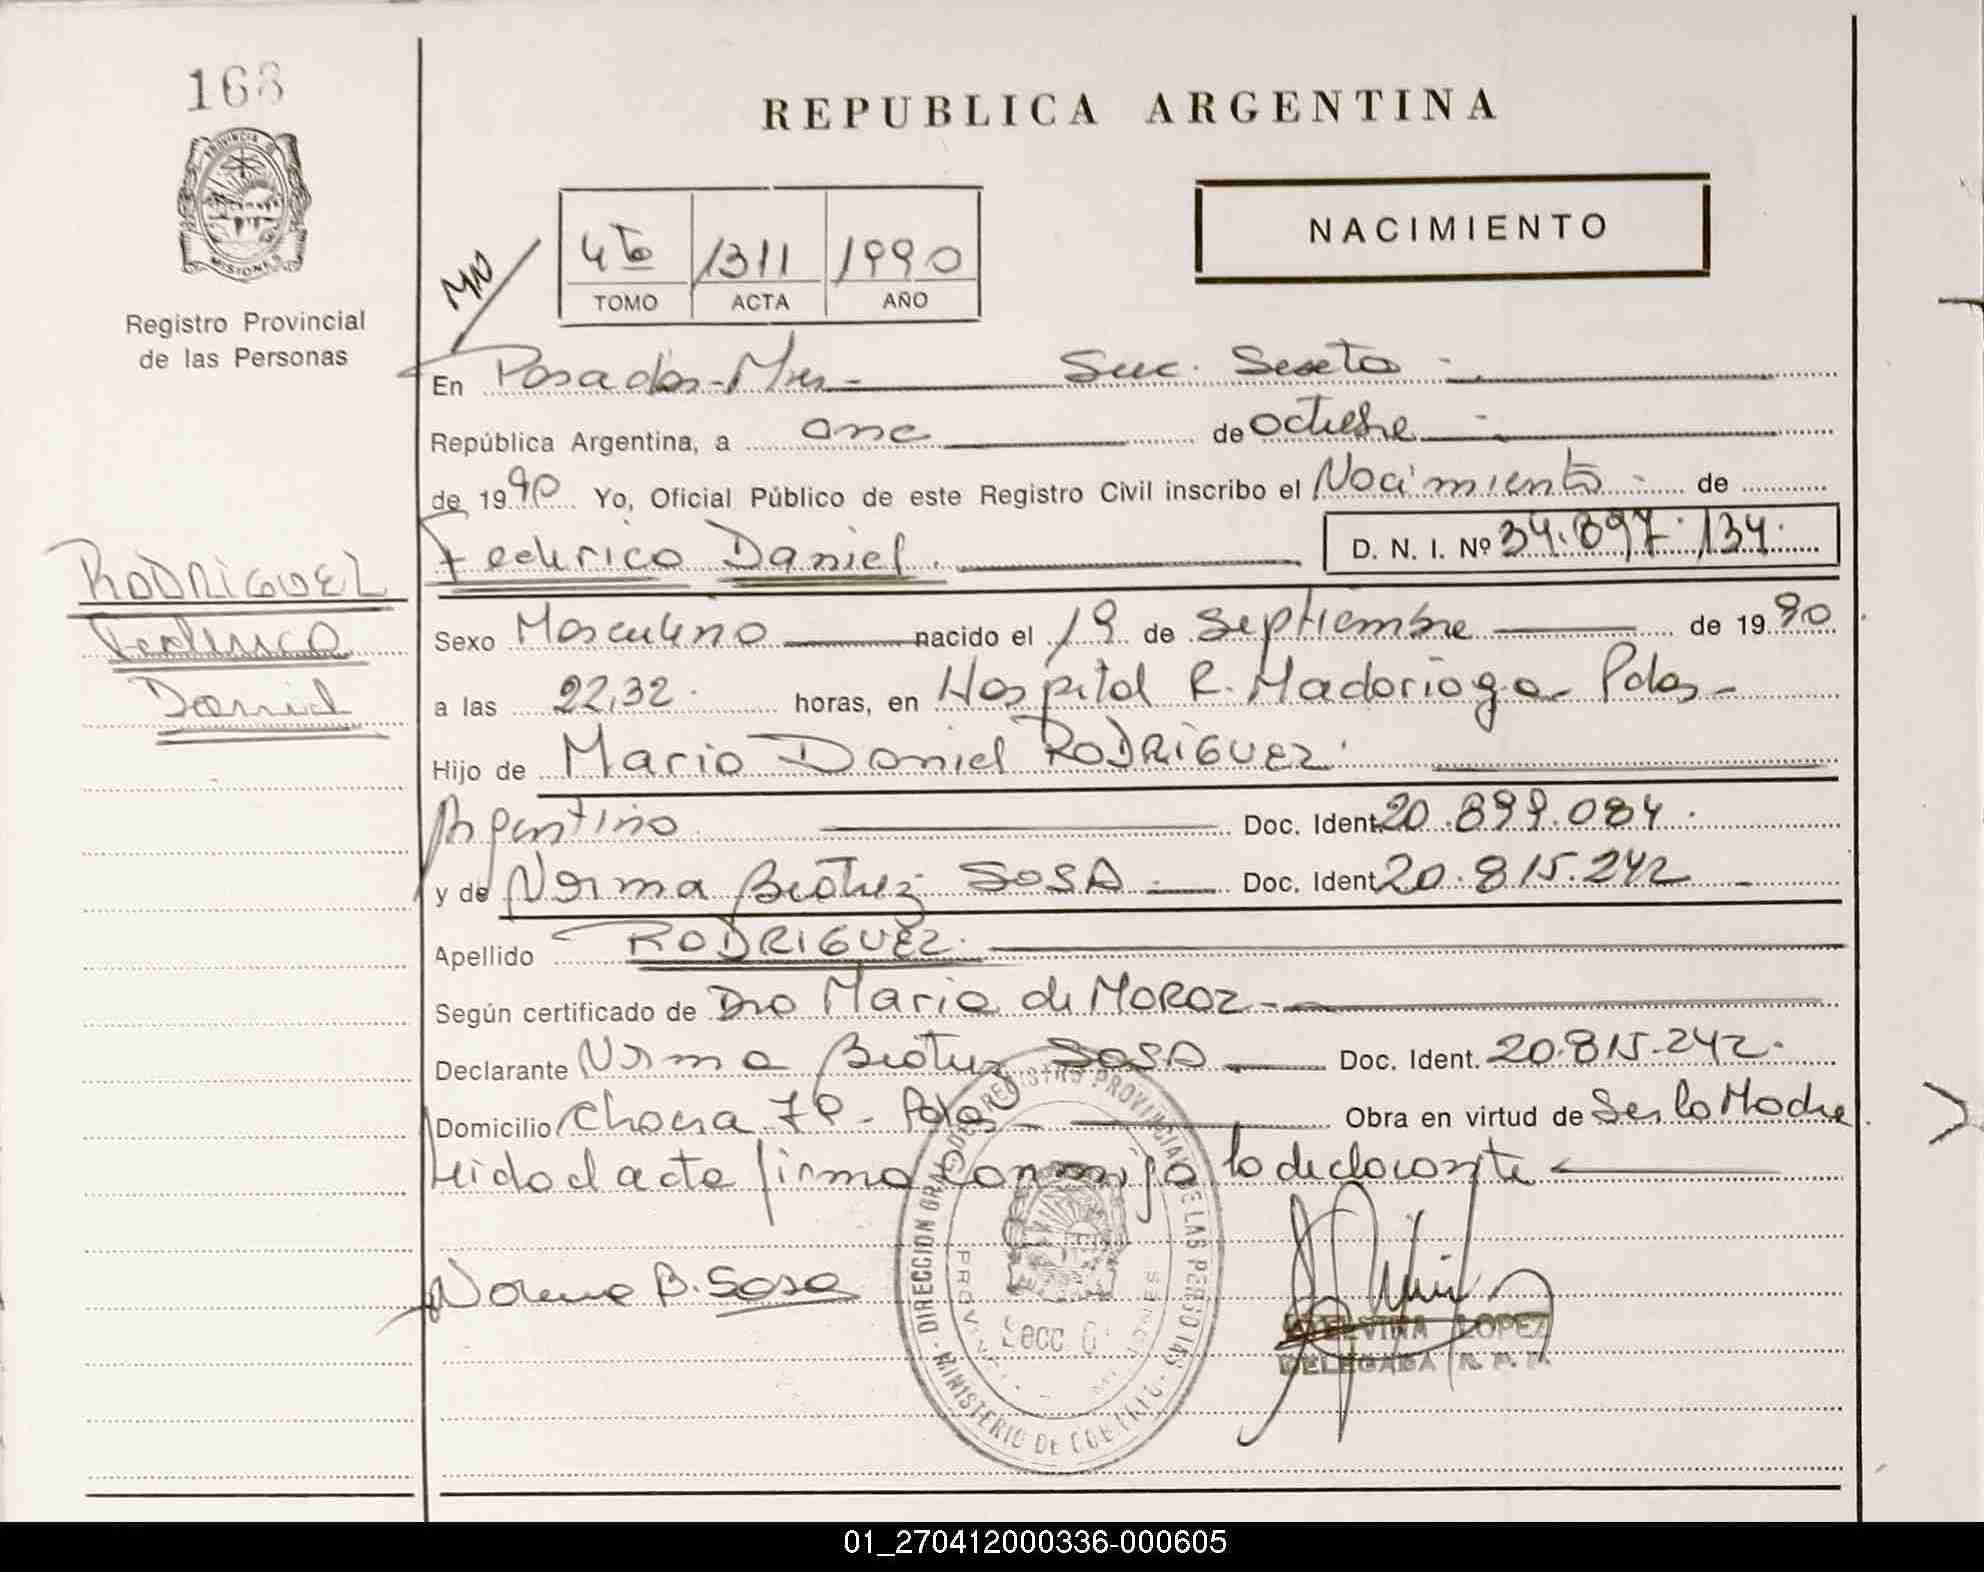 168
REPUBLICA ARGENTINA
PROVINCIA DE
MISIONES
Registro Provincial
de las Personas
4to 1311 1990
TOMO ACTA AÑO
NACIMIENTO
En Posadas - Mnes - Suc. Sexta -
República Argentina, a once de octubre -
de 1990 Yo, Oficial Público de este Registro Civil inscribo el Nacimiento - de
Federico Daniel. D. N. I. Nº 34.897.134.
RODRIGUEZ
Federico
Daniel
Sexo Masculino nacido el 19 de Septiembre de 1990
a las 22,32. horas, en Hospital R. Madariaga - Pdas -
Hijo de Mario Daniel RODRIGUEZ.
Argentino Doc. Ident. 20.899.084.
y de Norma Beatriz SOSA - Doc. Ident. 20.815.242 -
Apellido RODRIGUEZ.
Según certificado de Dra Maria de MOROZ -
Declarante Norma Beatriz SOSA Doc. Ident. 20.815.242.
Domicilio Chacra 70 - Pdas - Obra en virtud de Ser la Madre.
Leida el acta firma conmigo la declarante
Norma B. Sosa
DIRECCION GRAL. DEL REGISTRO PROVINCIAL DE LAS PERSONAS - MINISTERIO DE
Secc. 6
ELVIRA LOPEZ
DELEGADA R. P. P.
01_270412000336-000605